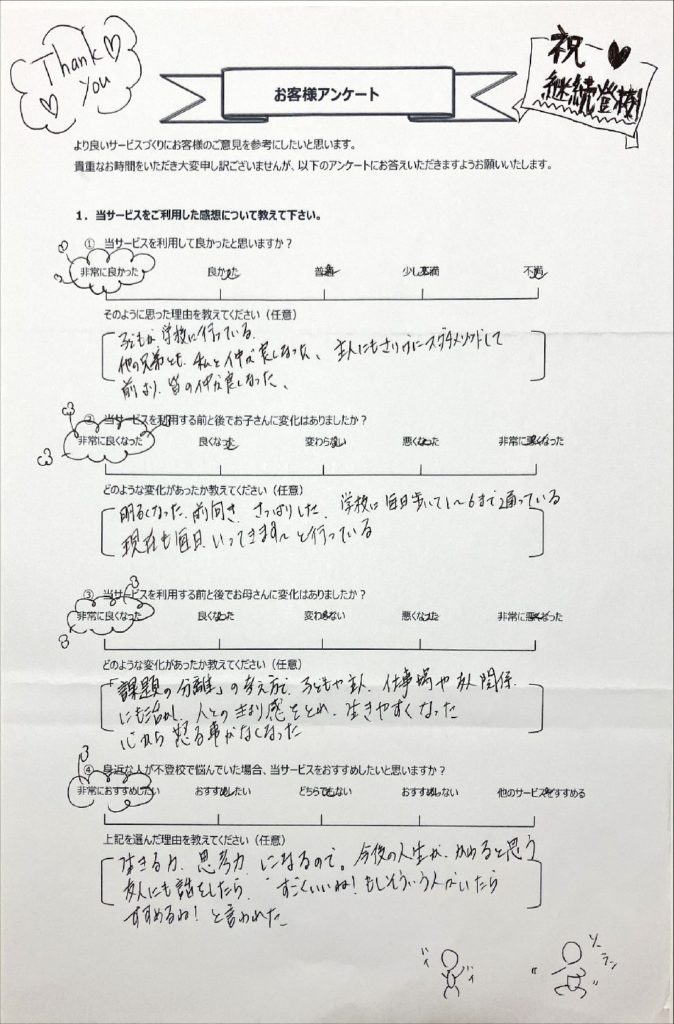 Thank♡
You
♡
祝一♥
継続登校
お客様アンケート
より良いサービスづくりにお客様のご意見を参考にしたいと思います。
貴重なお時間をいただき大変申し訳ございませんが、以下のアンケートにお答えいただきますようお願いいたします。
1．当サービスをご利用した感想について教えて下さい。
① 当サービスを利用して良かったと思いますか？
非常に良かった 良かった 普通 少し不満 不満
そのように思った理由を教えてください（任意）
子どもが学校に行っている、
他の兄弟とも、私と仲が良くなった、主人にもさりげにスダチメソッドして
前より、皆の仲が良くなった、
② 当サービスを利用する前と後でお子さんに変化はありましたか？
非常に良くなった 良くなった 変わらない 悪くなった 非常に悪くなった
どのような変化があったか教えてください（任意）
明るくなった、前向き、さっぱりした、学校に毎日歩いて1〜6まで通っている
現在も毎日、いってきます〜と行っている
③ 当サービスを利用する前と後でお母さんに変化はありましたか？
非常に良くなった 良くなった 変わらない 悪くなった 非常に悪くなった
どのような変化があったか教えてください（任意）
「課題の分離」の考え方で、子どもや主人、仕事場や友人関係
にも活かし、人とのきょり感をとれ、生きやすくなった
心から怒る事がなくなった
④ 身近な人が不登校で悩んでいた場合、当サービスをおすすめしたいと思いますか？
非常におすすめしたい おすすめしたい どちらでもない おすすめしない 他のサービスをすすめる
上記を選んだ理由を教えてください（任意）
生きる力、思考力、になるので。今後の人生が、かわると思う
友人にも話をしたら、「すごくいいね！もしそういう人がいたら
すすめるね！と言われた